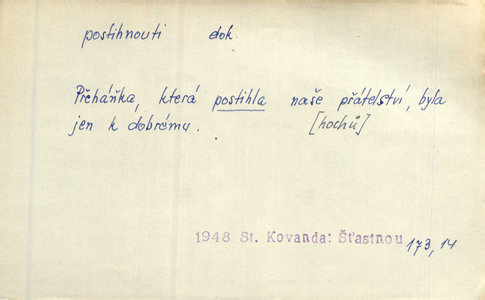 postihnouti dok.
Přeháňka, která postihla naše přátelství, byla
jen k dobrému. [hochů]
1948 St. Kovanda: Šťastnou 173,14